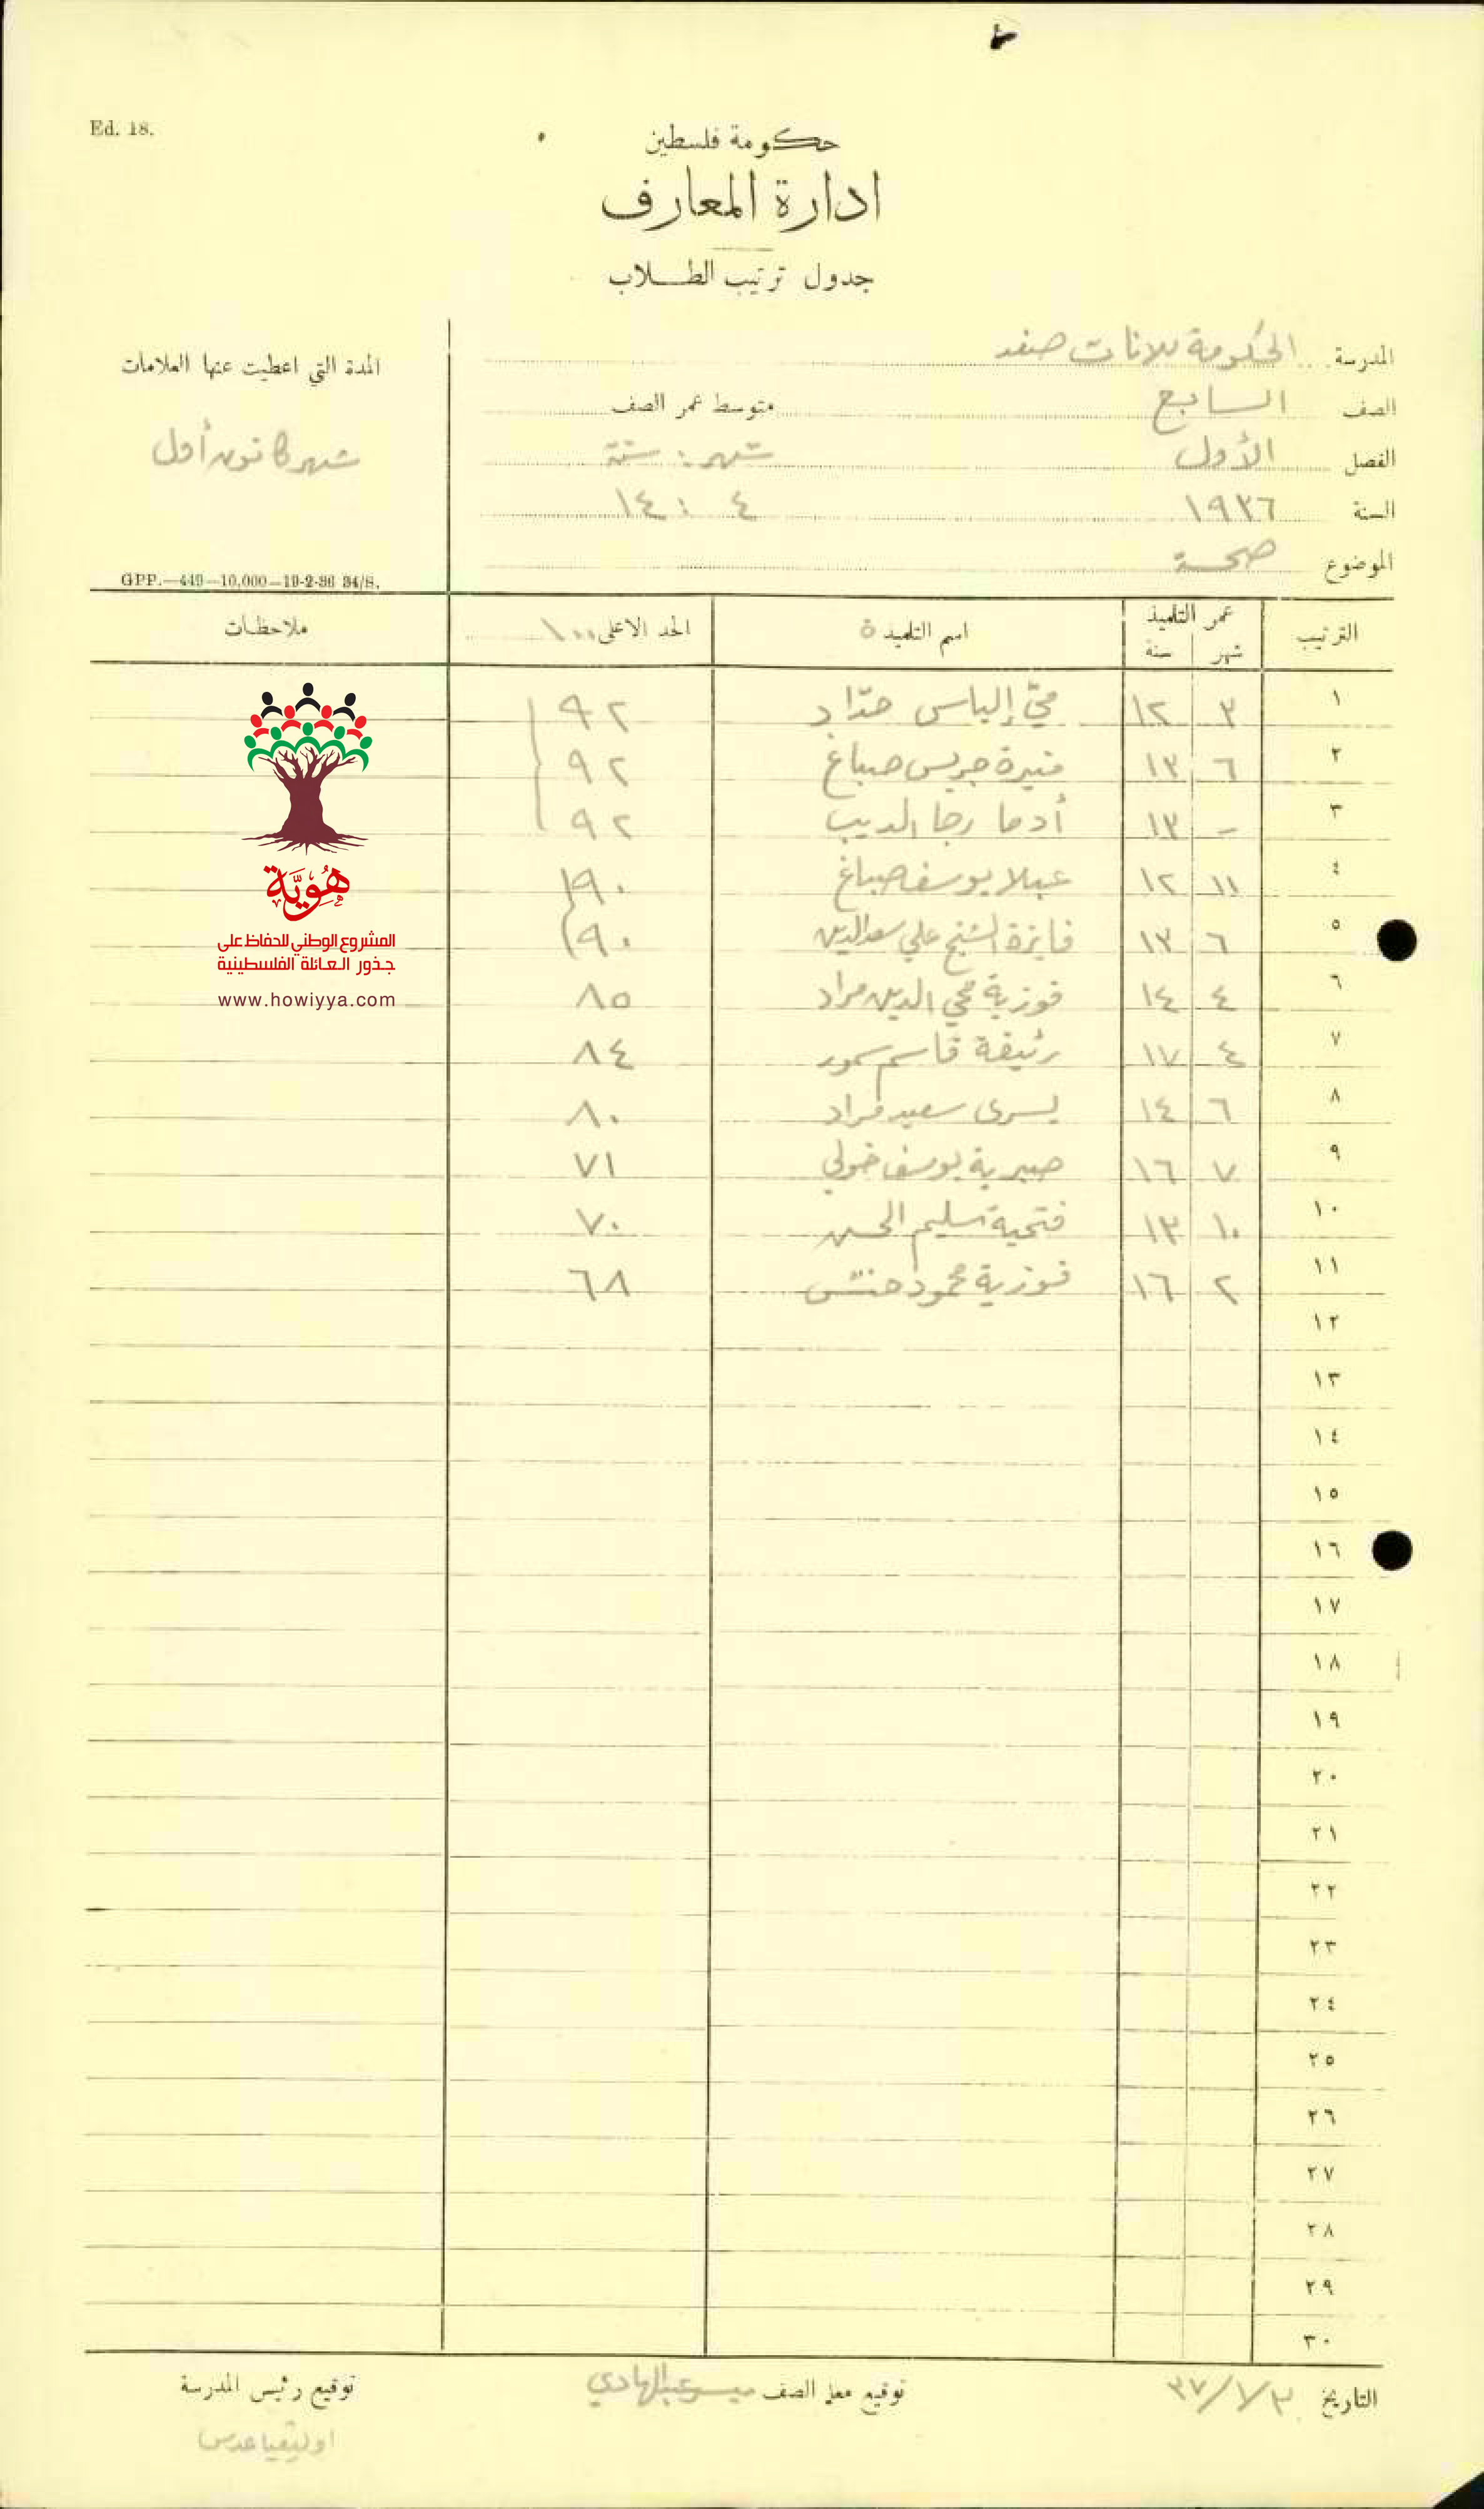 Ed. 18.
حكومة فلسطين
ادارة المعارف
جدول ترتيب الطلاب
المدرسة الحكومة للاناث صفد
الصف السابع متوسط عمر الصف
الفصل الأول شهر : سنة
السنة ١٩٣٦ ٤ : ١٤
الموضوع صحة
المدة التي اعطيت عنها العلامات
شهر كانون أول
GPP.—449—10,000—19-2-36 34/S.
الترتيب عمر التلميذ شهر سنة اسم التلميذ ة الحد الاعلى ١٠٠ ملاحظات
١ ٣ ١٢ ميّ إلياس حدّاد ٩٢
٢ ٦ ١٣ منيرة جريس صباغ ٩٢
٣ – ١٣ أدما رجا الديب ٩٢
٤ ١١ ١٢ عبلا يوسف صباغ ٩٠
٥ ٦ ١٣ فايزة الشيخ علي سعد الدين ٩٠
٦ ٤ ١٤ فوزية محي الدين مراد ٨٥
٧ ٤ ١٧ رئيفة قاسم سمور ٨٤
٨ ٦ ١٤ يسرى سعيد مراد ٨٠
٩ ٧ ١٦ صبرية يوسف خولي ٧١
١٠ ١٠ ١٣ فتحية سليم الحسن ٧٠
١١ ٢ ١٦ فوزية محمود حنتش ٦٨
١٢
١٣
١٤
١٥
١٦
١٧
١٨
١٩
٢٠
٢١
٢٢
٢٣
٢٤
٢٥
٢٦
٢٧
٢٨
٢٩
٣٠
هُوِيَّة
المشروع الوطني للحفاظ على
جذور العائلة الفلسطينية
www.howiyya.com
التاريخ ٣/١/٣٧ توقيع معلم الصف عبدالهادي توقيع رئيس المدرسة